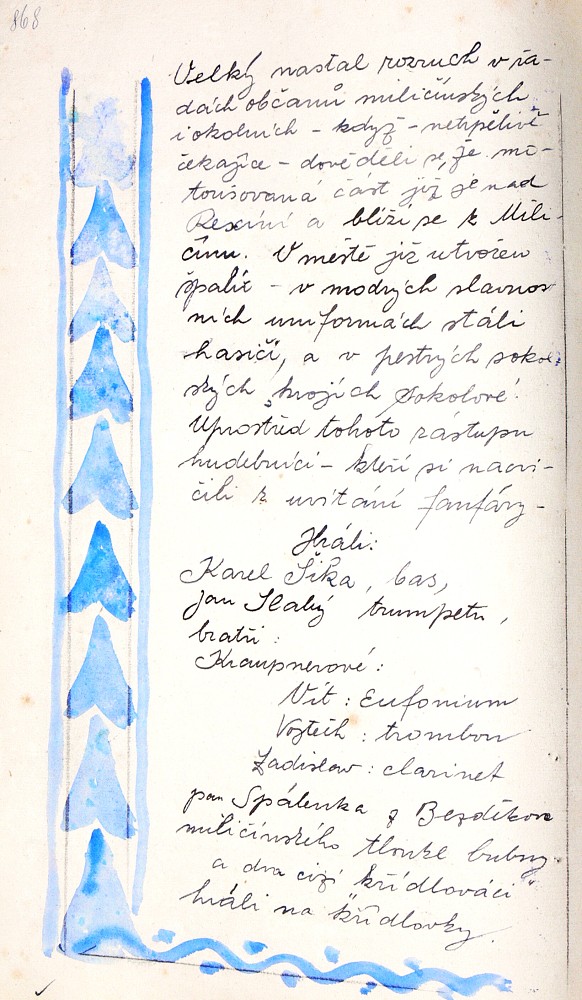 868
Velký nastal rozruch v řa-
dách občanů miličínských
i okolních - když - netrpělivě
čekajíce - dověděli se, že mo-
torisovaná část již je nad
a blíží se k Mili-
čínu. V městě již utvořen
špalír - v modrých slavnos-
ních uniformách stáli
hasiči, a v pestrých sokol-
ských krojích Sokolové!
Uprostřed tohoto zástupu
hudebníci - kteří si nacvi-
čili k uvítání fanfáry -
Hráli:
Karel Šíka, bas,
Jan Slabý trumpetu,
bratři:
Kraupnerové:
Vít: Eufonium
Vojtěch: trombon
Ladislav: clarinet
pan Spálenka z Bezděkova
miličínského tloukl bubny
a dva cizí "křídlováci"
hráli na křídlovky.